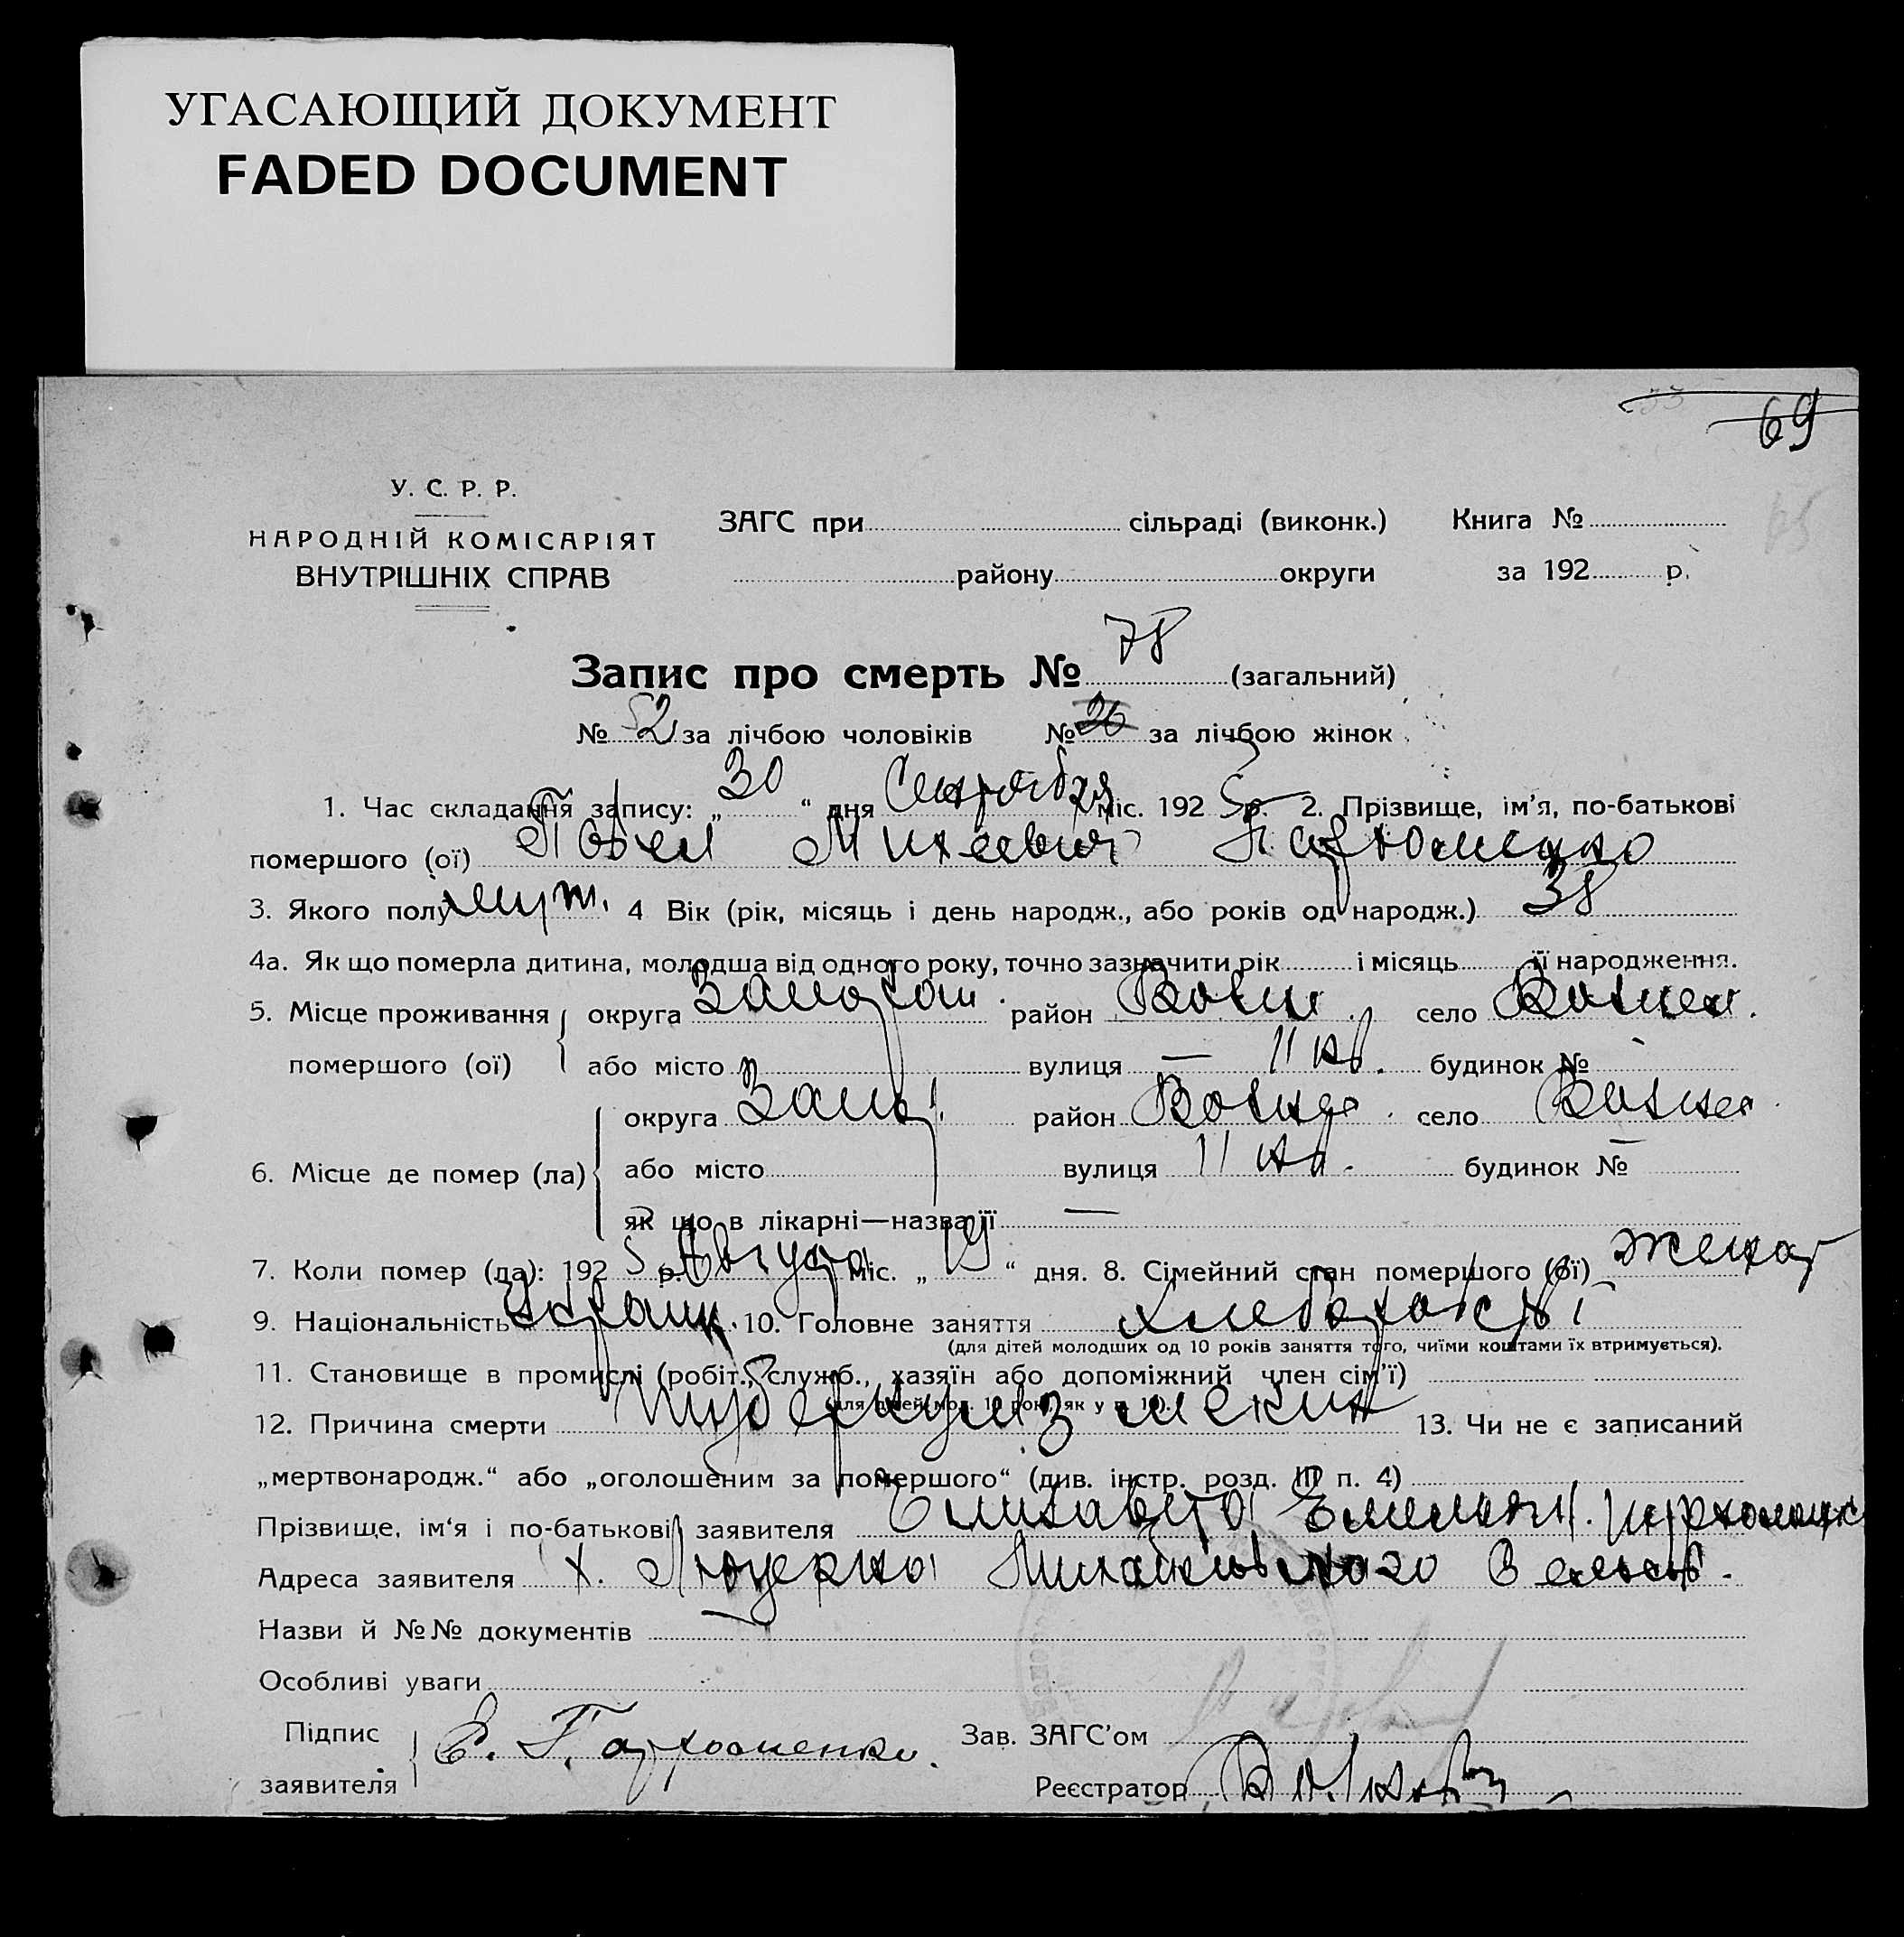 УГАСАЮЩИЙ ДОКУМЕНТ
FADED DOCUMENT
69
У. С. Р. Р.
НАРОДНІЙ КОМІСАРІЯТ
ВНУТРІШНІХ СПРАВ
ЗАГС при сільраді (виконк.) Книга №
району округи за 192 р.
Запис про смерть № 78 (загальний)
№ 52 за лічбою чоловіків № 26 за лічбою жінок
1. Час складання запису: „ 30 “ дня Сентября міс. 192 5 р. 2. Прізвище, ім’я, по-батькові
помершого (ої) Павел Михеевич Пархоменко
3. Якого полу муж. 4 Вік (рік, місяць і день народж., або років од народж.) 38
4а. Як що померла дитина, молодша від одного року, точно зазначити рік і місяць її народження.
5. Місце проживання округа район село
помершого (ої) або місто вулиця — 11 будинок №
округа район село
6. Місце де помер (ла) або місто вулиця 11 будинок № —
як що в лікарні—назва її —
7. Коли помер (ла): 192 5 р. Августа міс. „ 19 “ дня. 8. Сімейний стан помершого (ої) женат
9. Національність Украин. 10. Головне заняття хлебопашество
(для дітей молодших од 10 років заняття того, чиїми коштами їх втримується).
11. Становище в промислі (робіт., служб., хазяїн або допоміжний член сім’ї)
(для дітей мол. 10 рок. як у п. 10).
12. Причина смерти туберкулиз легких 13. Чи не є записаний
„мертвонародж.“ або „оголошеним за помершого“ (див. інстр. розд. III п. 4)
Прізвище, ім‘я і по-батькові заявителя Елизавета Емельян. Пархоменко
Адреса заявителя х. Михайловского
Назви й №№ документів —
Особливі уваги
Підпис
заявителя Е. Пархоменко.
Зав. ЗАГС’ом
Реєстратор